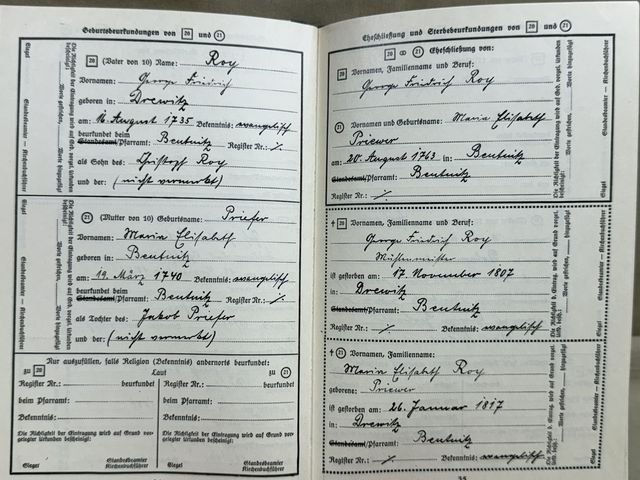 Geburtsbeurkundungen von 20 und 21
20 (Vater von 10) Name: Roy
Vornamen: George Friedrich
geboren in: Drewitz
am: 16. August 1735 Bekenntnis: evangelisch
beurkundet beim
Standesamt/Pfarramt: Beutnitz Register Nr.: ./.
als Sohn des: Christoph Roy
und der: (nicht vermerkt)
Siegel
Die Richtigkeit der Eintragung wird auf Grund vorgel. Urkunden bescheinigt:
Worte gestrichen, Worte hinzugefügt
Standesbeamter — Kirchenbuchführer
21 (Mutter von 10) Geburtsname: Priefer
Vornamen: Maria Elisabeth
geboren in: Beutnitz
am: 19. März 1740 Bekenntnis: evangelisch
beurkundet beim
Standesamt/Pfarramt: Beutnitz Register Nr.: ./.
als Tochter des: Jakob Priefer
und der: (nicht vermerkt)
Siegel
Die Richtigkeit der Eintragung wird auf Grund vorgel. Urkunden bescheinigt:
Worte gestrichen, Worte hinzugefügt
Standesbeamter — Kirchenbuchführer
Nur auszufüllen, falls Religion (Bekenntnis) andernorts beurkundet:
zu 20 Laut zu 21
Register Nr.: beurkundet
beim Pfarramt:
Bekenntnis:
Die Richtigkeit der Eintragung wird auf Grund vorgelegter Urkunden bescheinigt:
Siegel Standesbeamter Kirchenbuchführer
Register Nr.: beurkundet
beim Pfarramt:
Bekenntnis:
Die Richtigkeit der Eintragung wird auf Grund vorgelegter Urkunden bescheinigt:
Standesbeamter Kirchenbuchführer Siegel
Eheschließung und Sterbebeurkundungen von 20 und 21
20 ∞ 21 Eheschließung von:
20 Vornamen, Familienname und Beruf:
George Friedrich Roy
21 Vornamen und Geburtsname: Maria Elisabeth
Priewer
am: 20. August 1763 in: Beutnitz
Standesamt/Pfarramt: Beutnitz
Register Nr.: ./.
Siegel
Standesbeamter — Kirchenbuchführer
† 20 Vornamen, Familienname und Beruf:
George Friedrich Roy
ist gestorben am: 17. November 1807
in: Drewitz
Standesamt/Pfarramt: Beutnitz
Register Nr.: ./. Bekenntnis: evangelisch
Standesbeamter — Kirchenbuchführer
Siegel
† 21 Vornamen, Familienname:
Maria Elisabeth Roy
geborene: Priewer
ist gestorben am: 26. Januar 1817
in: Drewitz
Standesamt/Pfarramt: Beutnitz
Register Nr.: ./. Bekenntnis: evangelisch
Standesbeamter — Kirchenbuchführer
Siegel
35